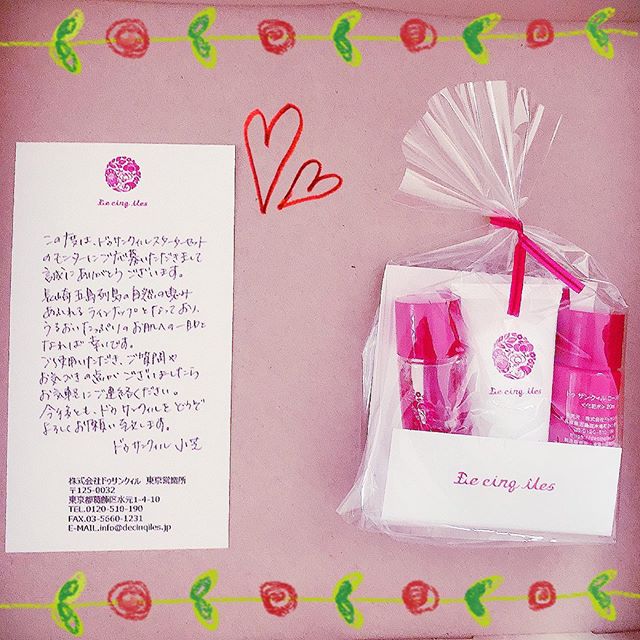 De cinq iles
この度は、ドゥサンクィルスターターセット
のモニターにご応募いただきまして
誠にありがとうございます。
長崎五島列島の自然の恵み
あふれるラインナップとなっており、
うるおいたっぷりのお肌への一助と
なれば幸いです。
ご使用いただき、ご質問や
お気づきの点がございましたら
お気軽にご連絡ください。
今後とも、ドゥサンクィルをどうぞ
よろしくお願い致します。
ドゥサンクィル
株式会社ドゥサンクィル 東京営業所
〒125-0032
東京都葛飾区水元1-4-10
TEL.0120-510-190
FAX.03-5660-1231
E-MAIL.info@decinqiles.jp
De cinq iles
ドゥ サンクィル ロー
<化粧水> 20m
De cinq iles